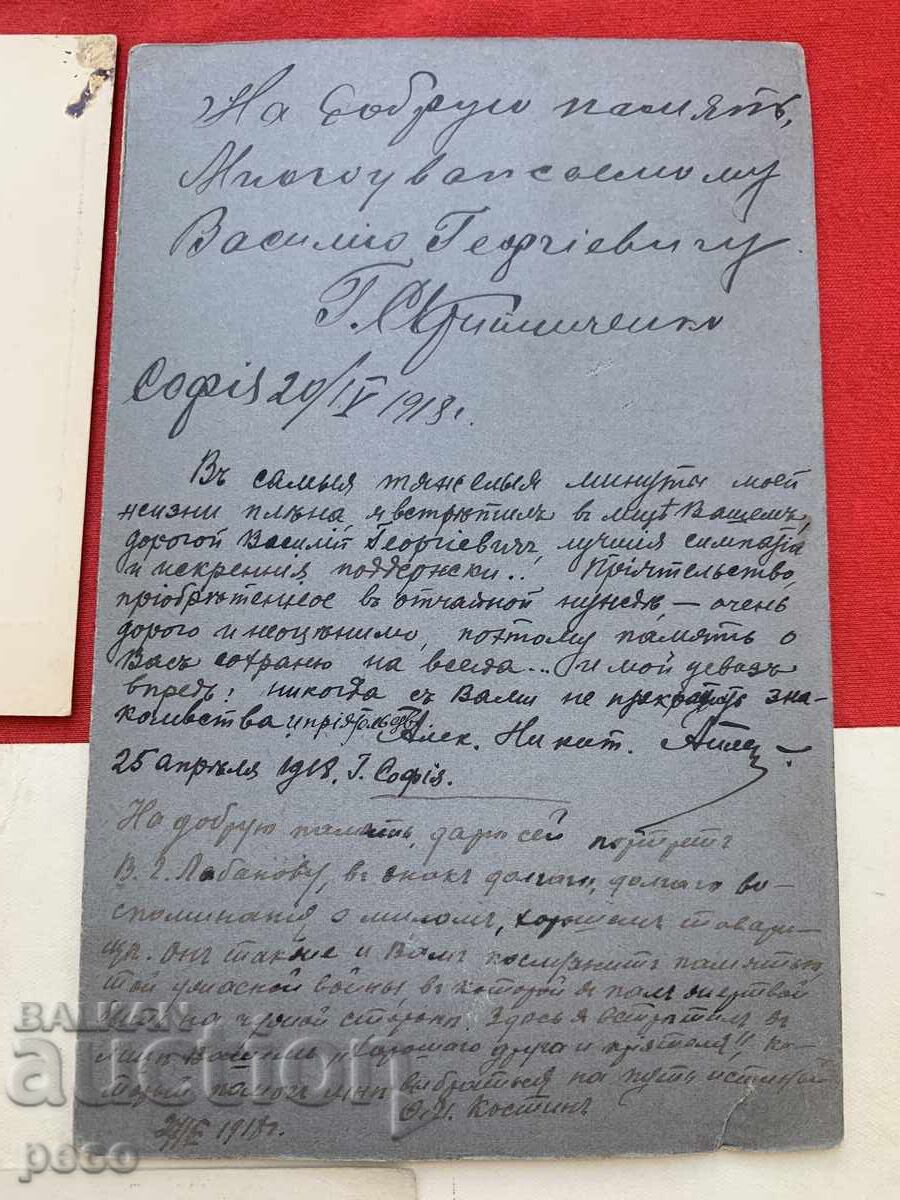 На добрую память,
Многоуважаемому
Василію Георгіевичу
Г.
Софія 20/IV 1918 г.
Въ самыя тяжелыя минуты моей
жизни плѣна, я встрѣтилъ въ лицѣ Вашемъ,
дорогой Василій Георгіевичъ, лучшія симпатіи
и искреннія поддержки!. Пріятельство,
пріобрѣтенное въ отчаяной нуждѣ — очень
дорого и неоцѣнимо, поэтому память о
Васъ сохраню на всегда... и мой девизъ
впредь: никогда съ Вами не прекратить зна-
комства и пріятельства.
Алек.
25 апрѣля 1918. Г. Софія.
На добрую память, дарю сей портретъ
В. Г. Лабанову, въ знакъ долгаго, долгаго во-
споминанія о миломъ, хорошемъ товари-
щѣ. Онъ также и Вамъ послужитъ памятью
той ужасной войны въ которой я палъ жертвой
на чужой сторонѣ. Здѣсь я встрѣтилъ въ
лицѣ Васъ хорошаго друга и пріятеля!! ко-
торый помогъ мнѣ выбраться на путь истиный
Костинъ
1918 г.
БАЛКАН
auction
peco